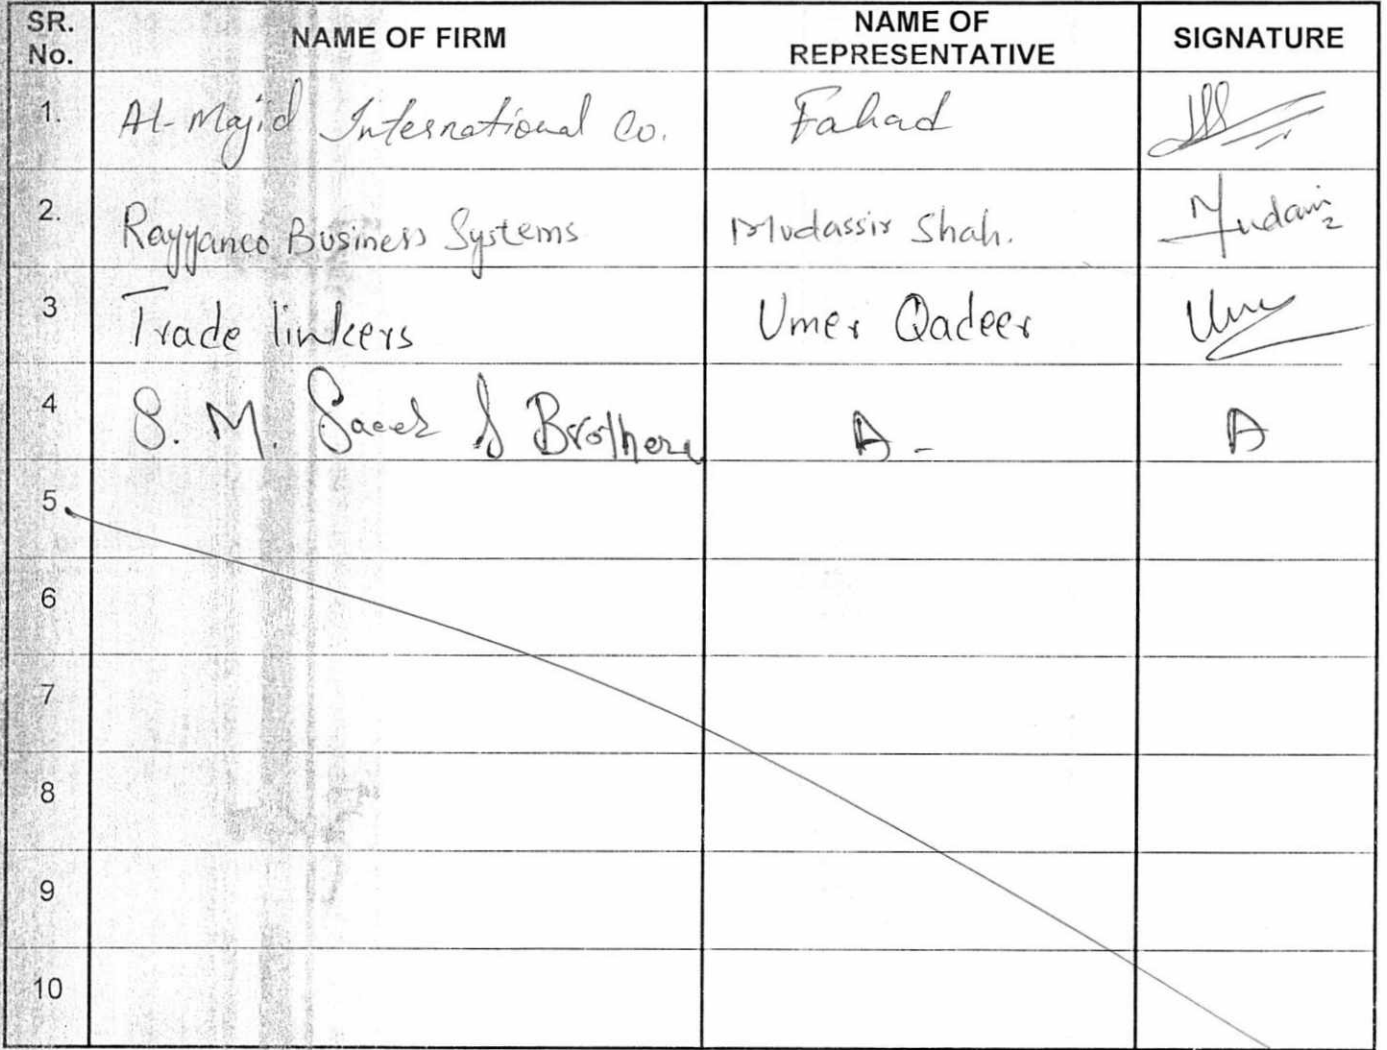 SR. No. NAME OF FIRM NAME OF REPRESENTATIVE SIGNATURE
1. Al-Majid International Co. Fahad
2. Rayyanco Business Systems Mudassir Shah.
3 Trade linkers Umer Qadeer
4 S. M. Saeed & Brothers A - A
5
6
7
8
9
10